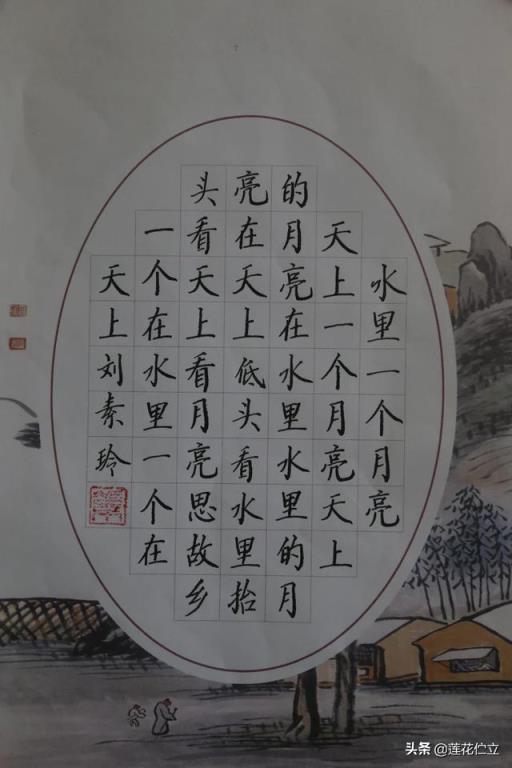 水里一个月亮
天上一个月亮天上
的月亮在水里水里的月
亮在天上低头看水里抬
头看天上看月亮思故乡
一个在水里一个在
天上刘素玲
头条 @莲花伫立